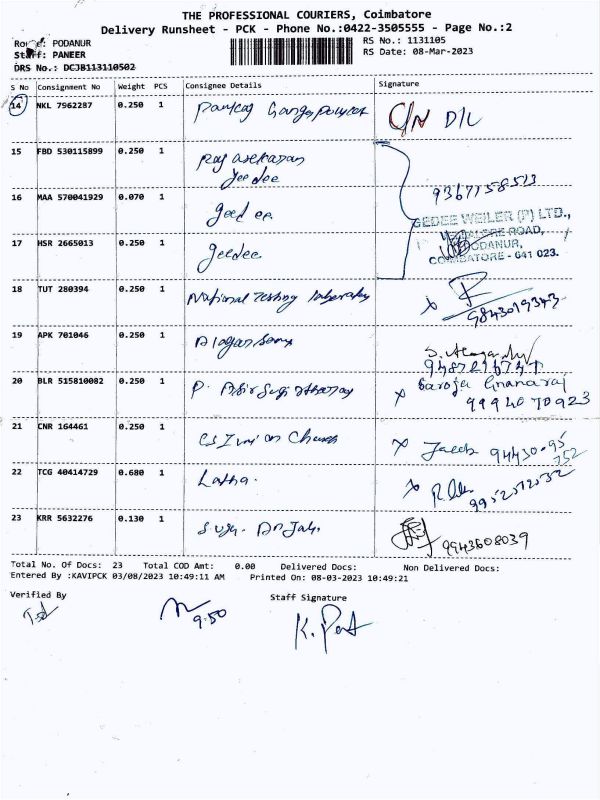 THE PROFESSIONAL COURIERS, Coimbatore
Delivery Runsheet - PCK - Phone No.:0422-3505555 - Page No.:2
Route: PODANUR
RS No.: 1131105
Staff: PANEER
RS Date: 08-Mar-2023
DRS No.: DCJB113110502
S No Consignment No Weight PCS Consignee Details Signature
14 NKL 7962287 0.250 1 C/N D/L
15 FBD 530115899 0.250 1
Geedee
9367158513
16 MAA 570041929 0.070 1 geedee
GEDEE WEILER (P) LTD.,
ROAD,
17 HSR 2665013 0.250 1 geedee.
PODANUR,
COIMBATORE - 641 023.
18 TUT 280394 0.250 1 National Testing laboratory x
9843019343
19 APK 701046 0.250 1
9487216747
20 BLR 515810082 0.250 1 P. x Saroja Gnanaraj
9994070923
21 CNR 164461 0.250 1 Church x Jacob 94430-95
752
22 TCG 40414729 0.680 1 Latha. x
9952512532
23 KRR 5632276 0.130 1
9943608039
Total No. Of Docs: 23 Total COD Amt: 0.00 Delivered Docs: Non Delivered Docs:
Entered By :KAVIPCK 03/08/2023 10:49:11 AM Printed On: 08-03-2023 10:49:21
Verified By Staff Signature
9:50